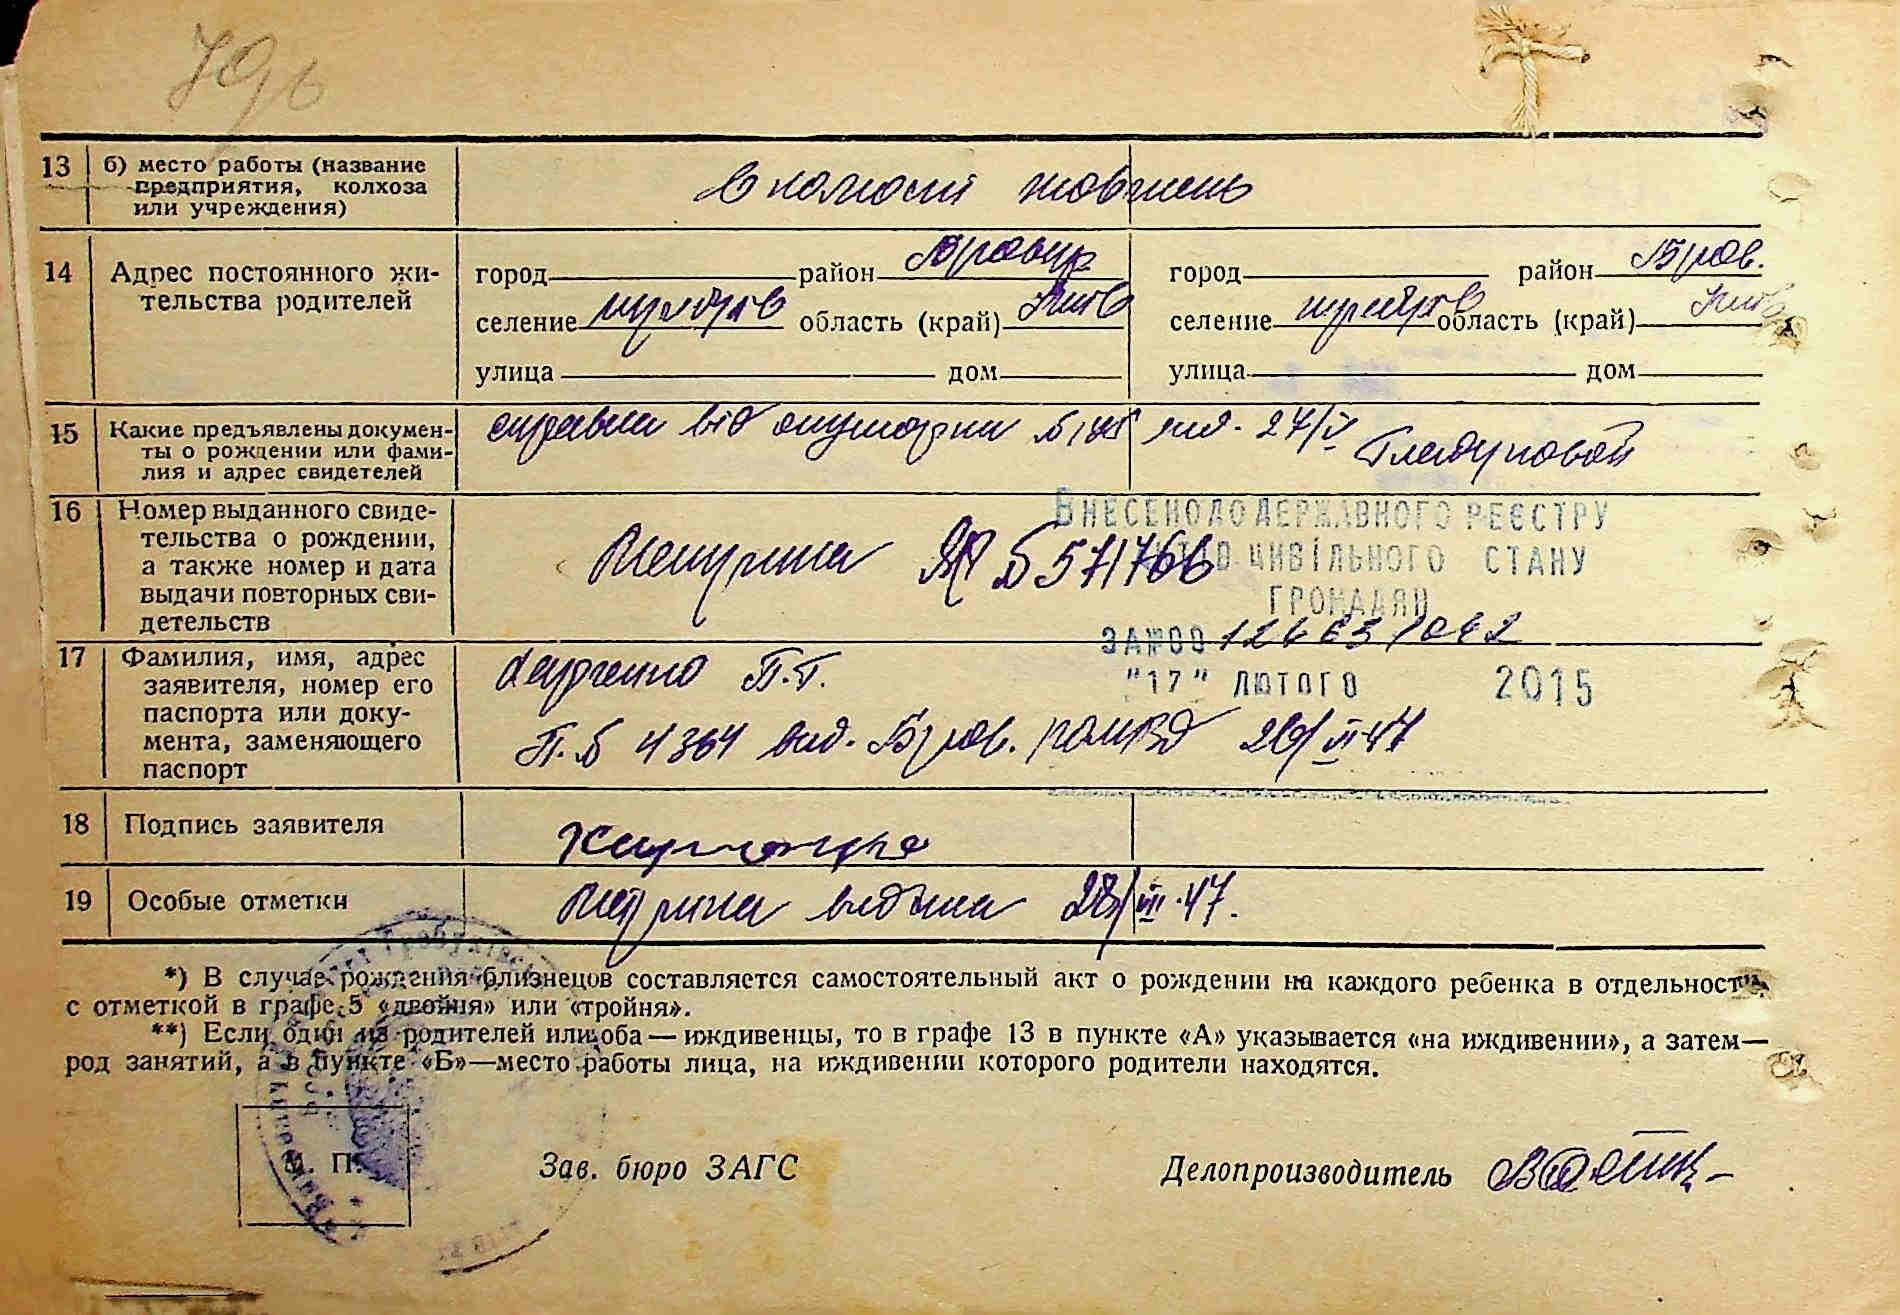 13 б) место работы (название
предприятия, колхоза
или учреждения)
в колгоспі жовтень
14 Адрес постоянного жи-
тельства родителей
город район Бровар город район Бров.
селение область (край) Київ селение область (край) Київ
улица дом улица дом
15 Какие предъявлены докумен-
ты о рождении или фами-
лия и адрес свидетелей
справка від акушорки вид. 27/V
16 Номер выданного свиде-
тельства о рождении,
а также номер и дата
выдачи повторных сви-
детельств
№ 571766
ВНЕСЕНО ДО ДЕРЖАВНОГО РЕЄСТРУ
АКТІВ ЦИВІЛЬНОГО СТАНУ
ГРОМАДЯН
ЗА №
"17" ЛЮТОГО 2015
17 Фамилия, имя, адрес
заявителя, номер его
паспорта или доку-
мента, заменяющего
паспорт
П.Г.
П. № 4364 вид. Бров. РОМВД
18 Подпись заявителя
19 Особые отметки
Метрика видана 28/VII.47.
*) В случае рождения близнецов составляется самостоятельный акт о рождении на каждого ребенка в отдельности
с отметкой в графе 5 «двойня» или «тройня».
**) Если один из родителей или оба — иждивенцы, то в графе 13 в пункте «А» указывается «на иждивении», а затем—
род занятий, а в пункте «Б»—место работы лица, на иждивении которого родители находятся.
М. П.
Зав. бюро ЗАГС Делопроизводитель